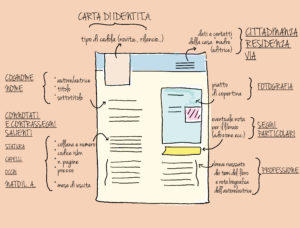 CARTA DI IDENTITA
tipo di cedola (novità, rilancio..)
dati e contatti
della casa madre
(editrice)
CITTADINANZA
RESIDENZA
VIA
COGNOME
NOME
• autore/autrice
• titolo
• sottotitolo
piatto
di copertina
FOTOGRAFIA
CONNOTATI
E CONTRASSEGNI
SALIENTI
STATURA
CAPELLI
OCCHI
NATO IL A
• collana e numero
• codice isbn
• n. pagine
• prezzo
• mese di uscita
eventuale nota
per il lancio
SEGNI
PARTICOLARI
dei temi del libro
e nota biografica
dell'autore/autrice
PROFESSIONE